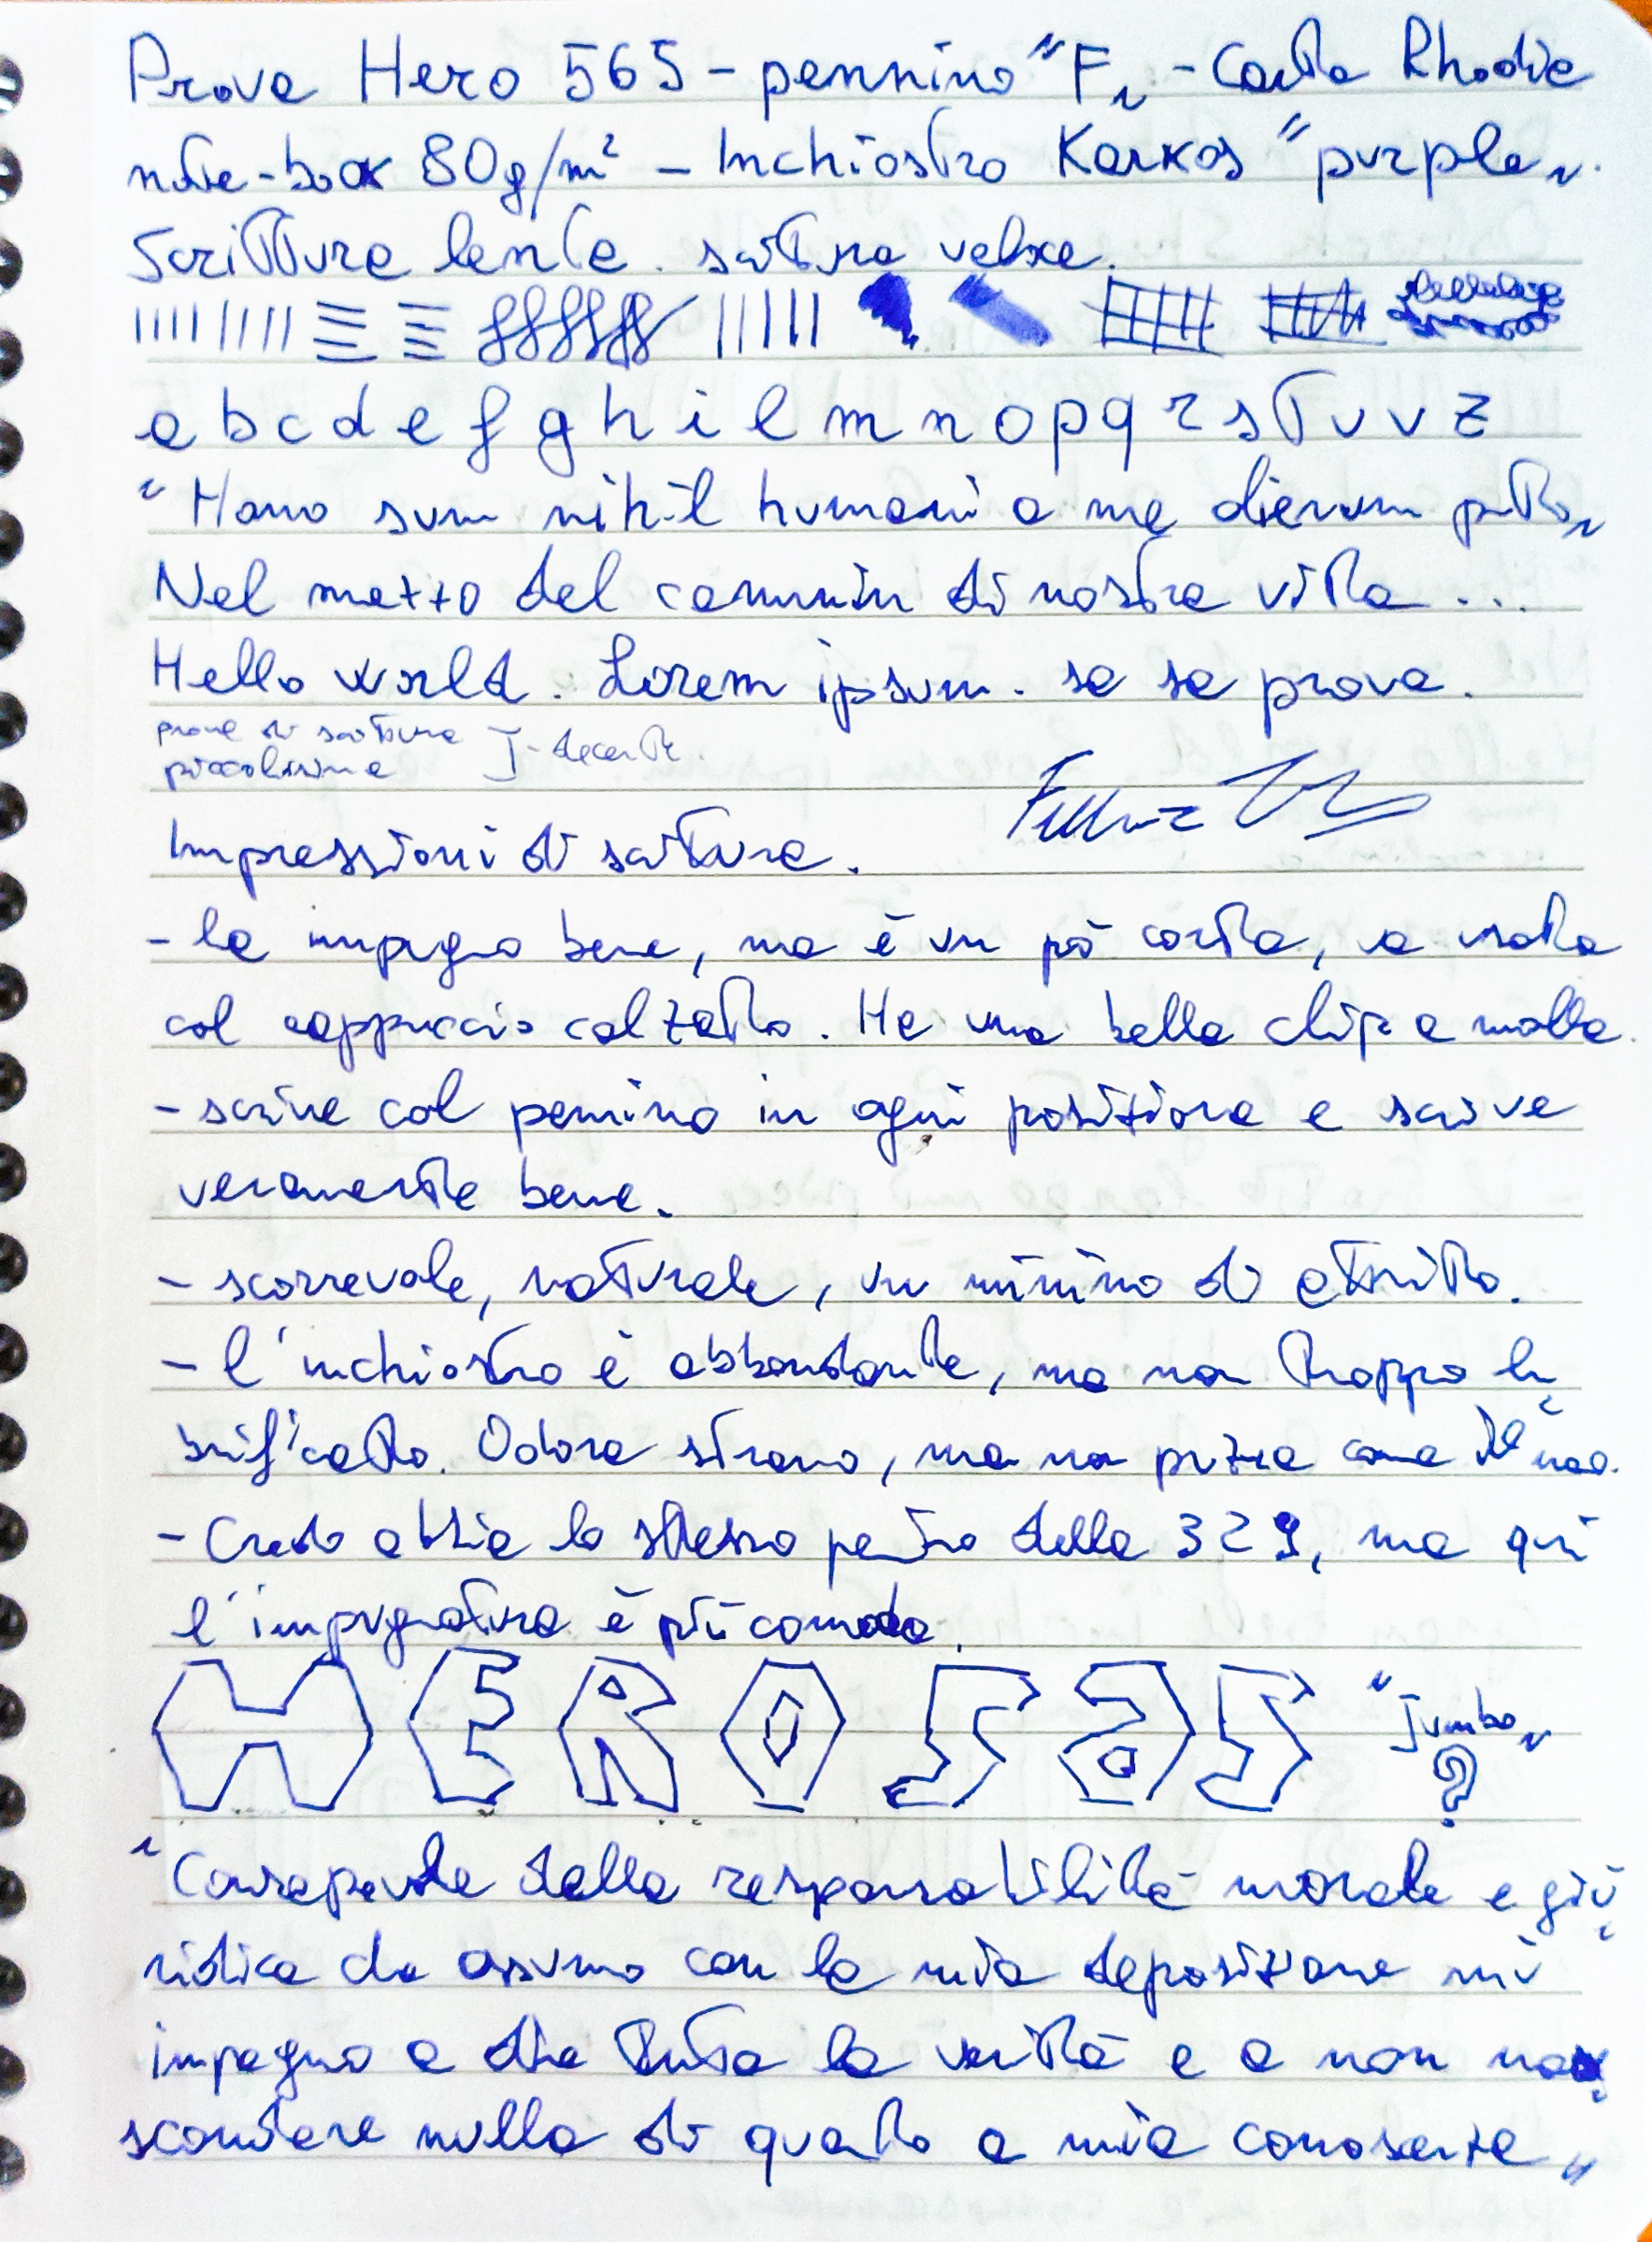 Prova Hero 565 - pennino "F" - Carta Rhodia
note-book 80g/m² - Inchiostro Karkos "purple".
Scrittura lenta. scrittura veloce.
a b c d e f g h i l m n o p q r s t u v z
"Homo sum nihil humani a me alienum puto"
Nel mezzo del cammin di nostra vita ...
Hello world. Lorem ipsum. sa sa prova.
prove di scrittura
piccolissima
Impressioni di scrittura.
- la impugno bene, ma è un pò corta, va usata
col cappuccio calzato. Ha una bella clip a molla.
- scrive col pennino in ogni posizione e scrive
veramente bene.
- scorrevole, naturale, un minimo di attrito.
- l'inchiostro è abbondante, ma non troppo lu
brificato. Odore strano, ma non puzza come il nero.
- Credo abbia lo stesso pennino della 329, ma qui
l'impugnatura è più comoda.
HERO 565 "Jumbo"
?
"Consapevole della responsabilità morale e giu
ridica che assumo con la mia deposizione mi
impegno a dire tutta la verità e a non na
scondere nulla di quanto a mia conoscenza"